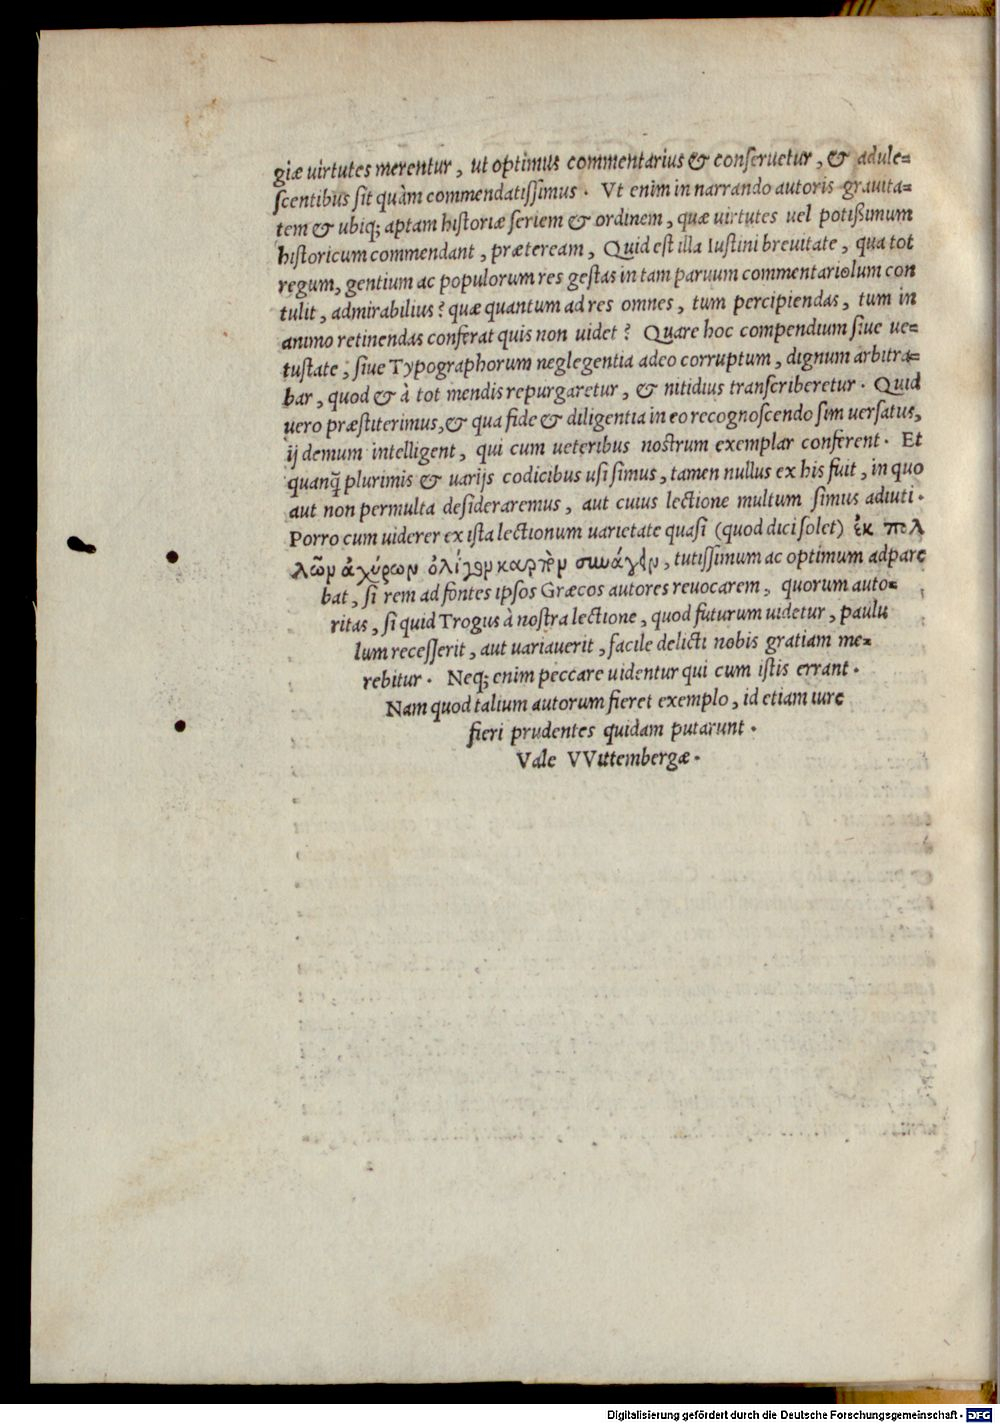 giæ uirtutes merentur, ut optimus commentarius & conseruetur, & adule=
scentibus sit quàm commendatissimus. Vt enim in narrando autoris grauita=
tem & ubiq; aptam historiæ seriem & ordinem, quæ uirtutes uel potißimum
historicum commendant, præteream, Quid est illa Iustini breuitate, qua tot
regum, gentium ac populorum res gestas in tam paruum commentariolum con
tulit, admirabilius? quæ quantum ad res omnes, tum percipiendas, tum in
animo retinendas conferat quis non uidet? Quare hoc compendium siue ue=
tustate, siue Typographorum neglegentia adeo corruptum, dignum arbitra=
bar, quod & à tot mendis repurgaretur, & nitidius transcriberetur. Quid
uero præstiterimus, & qua fide & diligentia in eo recognoscendo sim uersatus,
ij demum intelligent, qui cum ueteribus nostrum exemplar conferent. Et
quanq̃ plurimis & uarijs codicibus usi simus, tamen nullus ex his fuit, in quo
aut non permulta desideraremus, aut cuius lectione multum simus adiuti.
Porro cum uiderer ex ista lectionum uarietate quasi (quod dici solet) ἐκ πολ
λῶν ἀχύρων ὀλίγον καρπὸν συνάγειν, tutissimum ac optimum adpare
bat, si rem ad fontes ipsos Græcos autores reuocarem, quorum auto=
ritas, si quid Trogus à nostra lectione, quod futurum uidetur, paulu
lum recesserit, aut uariauerit, facile delicti nobis gratiam me=
rebitur. Neq; enim peccare uidentur qui cum istis errant.
Nam quod talium autorum fieret exemplo, id etiam iure
fieri prudentes quidam putarunt.
Vale VVittembergæ.
Digitalisierung gefördert durch die Deutsche Forschungsgemeinschaft - DFG